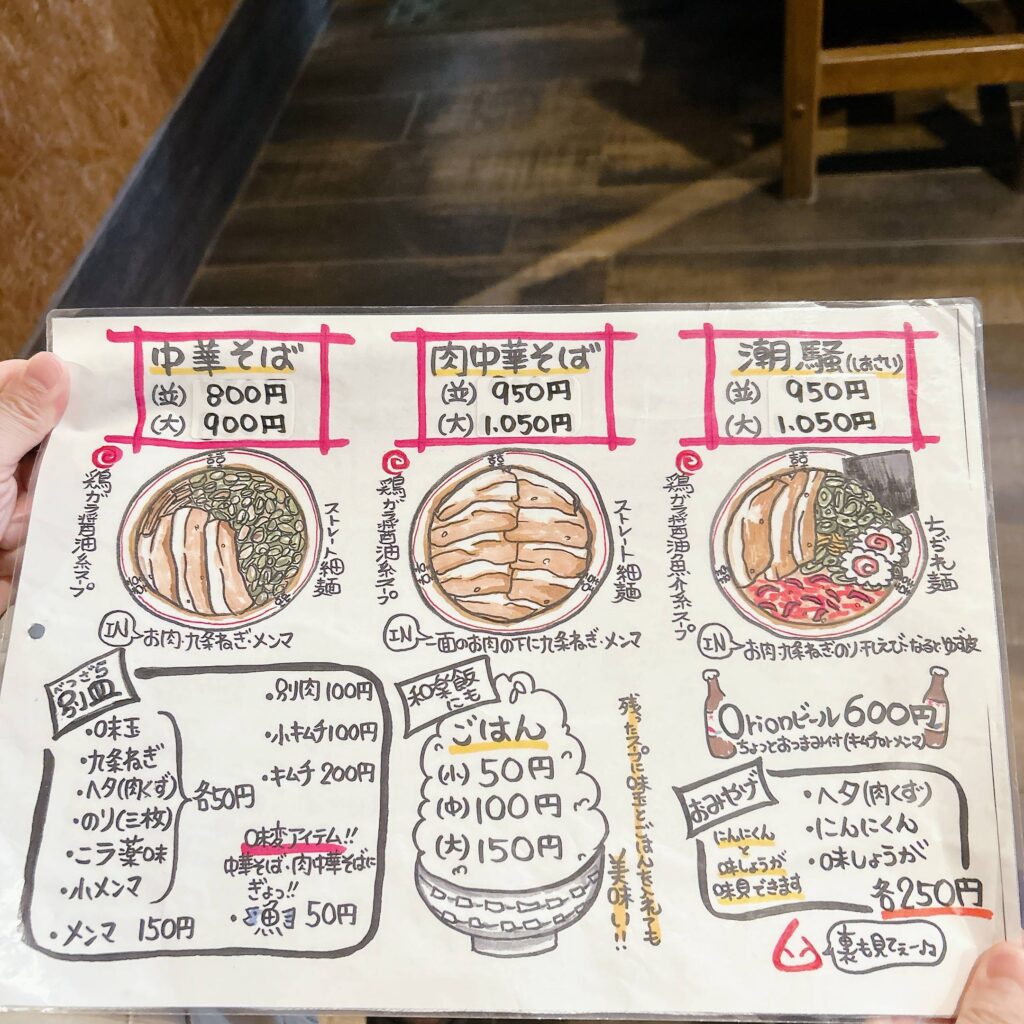 中華そば
(並) 800円
(大) 900円
肉中華そば
(並) 950円
(大) 1.050円
潮騒(しおさい)
(並) 950円
(大) 1.050円
鶏ガラ醤油系スープ
ストレート細麺
IN お肉・九条ねぎ・メンマ
鶏ガラ醤油系スープ
ストレート細麺
IN 一面のお肉の下に九条ねぎ・メンマ
鶏ガラ醤油魚介系スープ
ちぢれ麺
IN お肉・九条ねぎ・のり・干しえび・なると・ゆず皮
べつざら
別皿
・味玉
・九条ねぎ
・ヘタ(肉くず)
・のり(三枚)
・ニラ薬味
・小メンマ
各50円
・メンマ 150円
・別肉 100円
・小キムチ 100円
・キムチ 200円
味変アイテム!!
中華そば・肉中華そばに
ぎょっ!!
・魚 50円
和楽飯にも
ごはん
(小) 50円
(中) 100円
(大) 150円
残ったスープに味玉とごはんを入れても
美味い!!
Orionビール 600円
ちょっとおつまみ付(キムチorメンマ)
おみやげ
にんにくん
と
味しょうが
味見できます
・ヘタ(肉くず)
・にんにくん
・味しょうが
各250円
裏も見てぇー♪